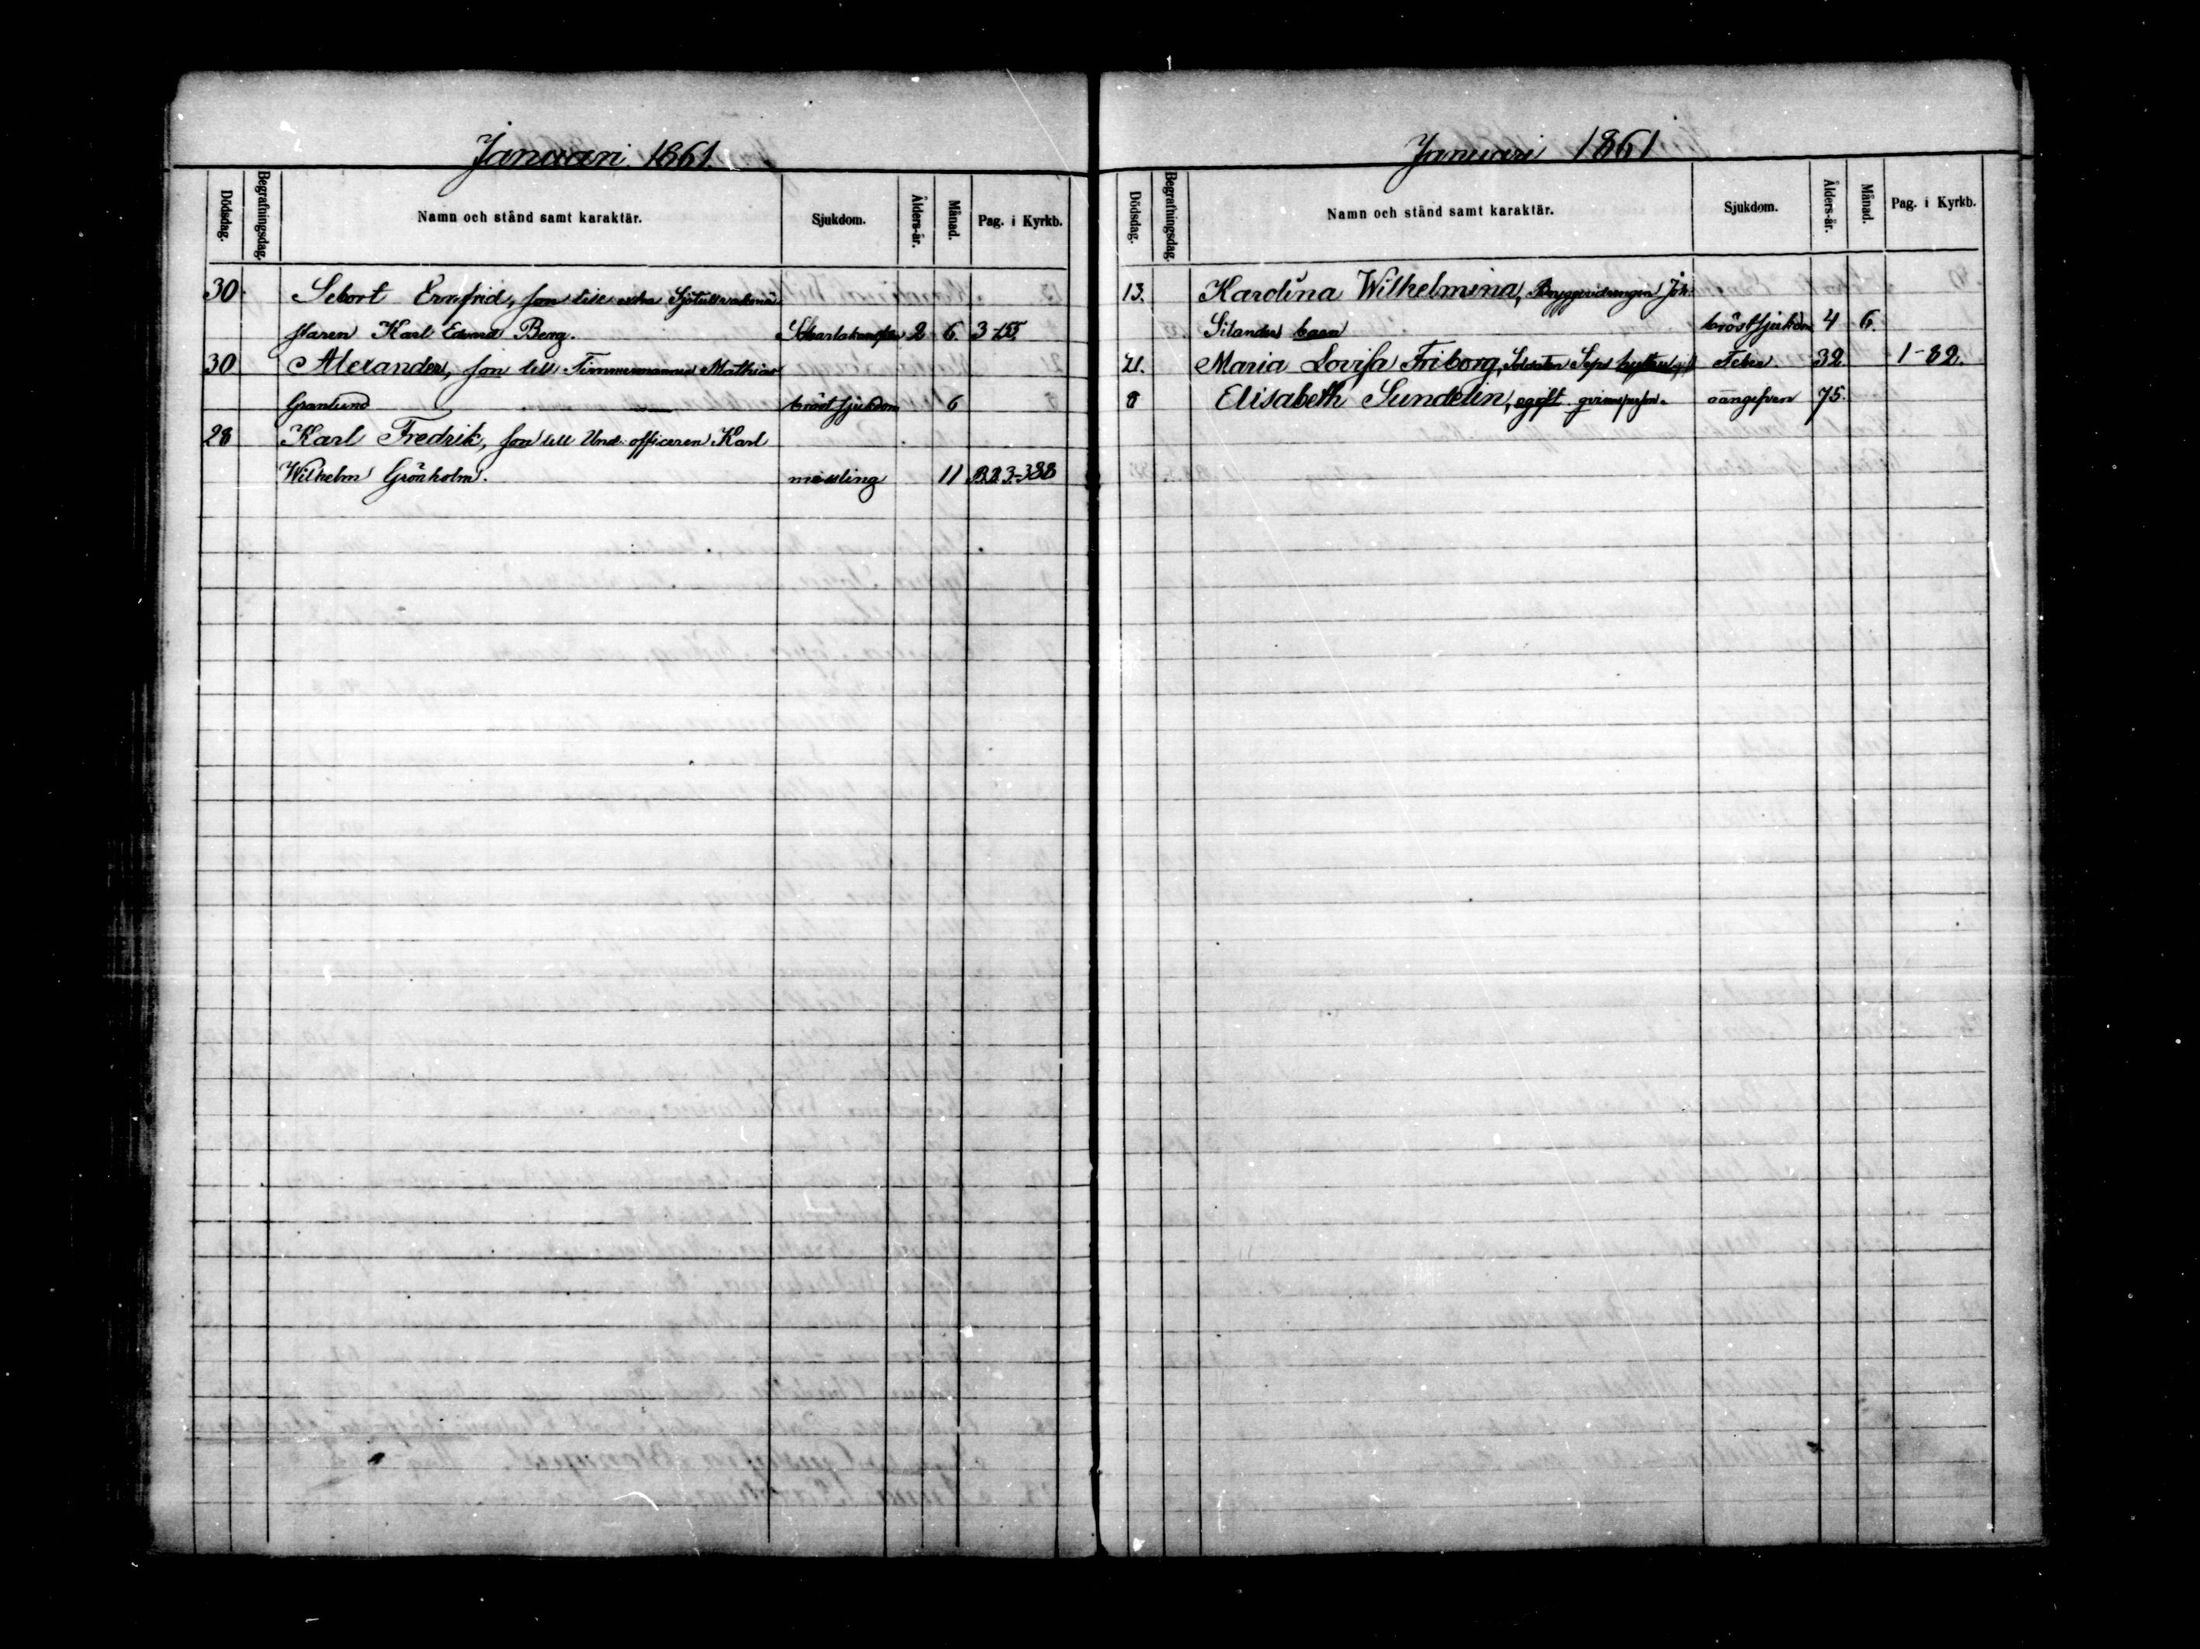 Januari 1861.
Dödsdag. Begrafningsdag. Namn och stånd samt karaktär. Sjukdom. Ålders-år. Månad. Pag. i Kyrkb.
30. Ernfrid, son till extra
Karl Edvard Berg. 2 6. 3-155
30 Alexander, son till Timmermannen Mathias
Granlund bröstsjukdom 6
28 Karl Fredrik, son till Und. officeren Karl
Wilhelm Grönholm. messling 11 B.2.3-388
Januari 1861
Dödsdag. Begrafningsdag. Namn och stånd samt karaktär. Sjukdom. Ålders-år. Månad. Pag. i Kyrkb.
13. Karolina Wilhelmina, Joh.
Silanders barn bröstsjukdom 4 6.
21. Maria Lovisa Friborg, Soldaten Feber. 32 1-82.
8 Elisabeth Sundelin, ogift qvinsperson. oangifven 75.